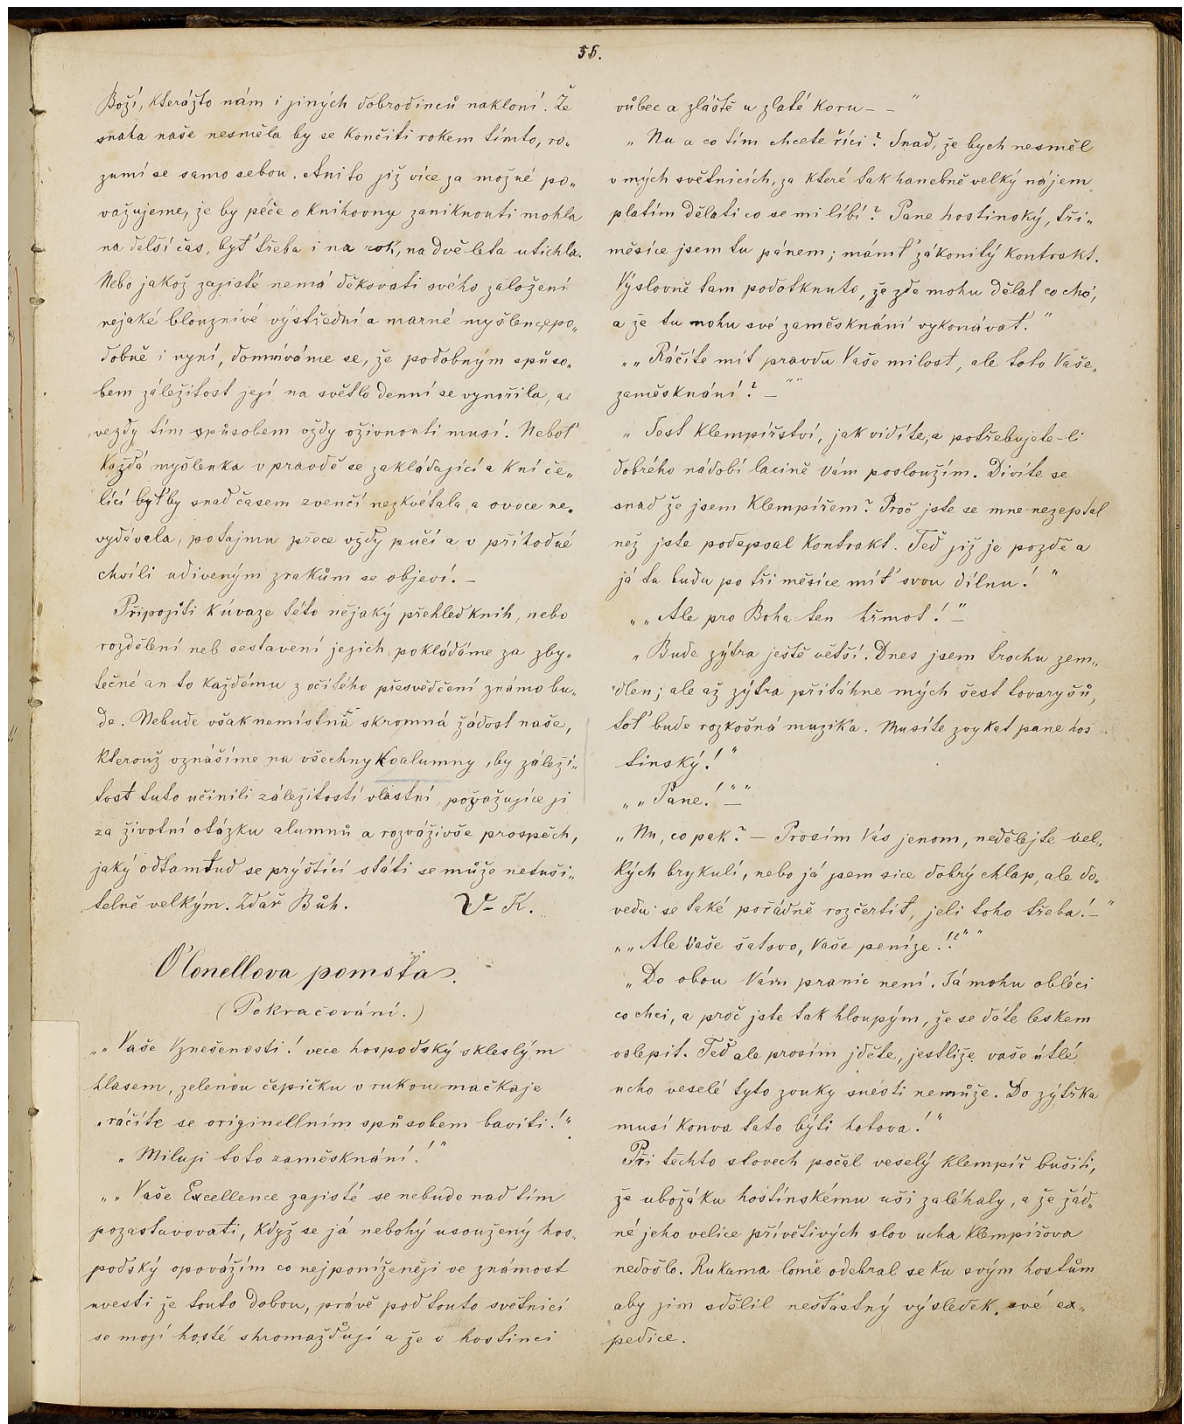 55.
Boží, kterážto nám i jiných dobrodinců nakloní. Že
snaha naše nesměla by se končiti rokem tímto, ro-
zumí se samo sebou. Anito již více za možné po-
važujeme, že by péče o knihovny zaniknouti mohla
na delší čas, byť třeba i na rok, na dvě léta utichla.
Nebo jakož zajisté nemá děkovati svého založení
nejaké blouznivé výstřední a marné myšlence, po-
dobně i nyní, domníváme se, že podobným spůso-
bem záležitost její na světlo denní se vynořila, a
vezdy tím spůsobem vždy oživnouti musí. Neboť
každá myšlenka v pravdě se zakládající a k ní če-
lící byť by snad časem zvenčí nezkvétala a ovoce ne-
vydávala, potajmu přece vždy pučí a v příhodné
chvíli udiveným zrakům se objeví. –
Připojiti k úvaze této nějaký přehled knih, nebo
rozdělení neb sestavení jejich, pokládáme za zby-
tečné an to každému z očitého přesvědčení známo bu-
de. Nebude však nemístná skromná žádost naše,
kterouž vznášíme na všechny koalumny, by záleži-
tost tuto učinili záležitostí vlastní, považujíce ji
za životní otázku alumnů a rozváživše prospěch,
jaký odtamtud se prýštící státi se může netuši-
telně velkým. Zdař Bůh. V. K.
O'Conellova pomsta.
(Pokračování.)
„„Vaše Vznešenosti! vece hospodský skleslým
hlasem, zelenou čepičku v rukou mačkaje
„ráčíte se originellním spůsobem baviti!“
„Miluji toto zaměsknání!“
„„Vaše Excellence zajisté se nebude nad tím
pozastavovati, když se já nebohý usoužený hos-
podský opovážím co nejponíženěji ve známost
uvesti že touto dobou, právě pod touto světnicí
se moji hosté shromažďují a že v hostinci
vůbec a zláště u zlaté koru– –“
„Nu a co tím chcete říci? Snad, že bych nesměl
v mých světnicích, za které tak hanebně velký nájem
platím dělati co se mi líbí? Pane hostinský, tři-
měsíce jsem tu pánem; mámť zákonitý kontrakt.
Výslovně tam podotknuto, že zde mohu dělat co chci,
a že tu mohu své zaměsknání vykonávať.“
„„Ráčíte mít pravdu Vaše milost, ale toto Vaše
zaměsknání? –““
„Jest klempířství, jak vidíte, a potřebujete-li
dobrého nádobí lacině Vám posloužím. Divíte se
snad že jsem klempířem? Proč jste se mne nezeptal
než jste podepsal kontrakt. Teď již je pozdě a
já tu budu po tři měsíce míť svou dílnu!“
„„Ale pro Boha ten hřmot! –““
„Bude zýtra ještě větší. Dnes jsem trochu zem-
dlen; ale až zýtra přitáhne mých šest tovaryšů,
toť bude rozkošná muzika. Musíte zvykat pane hos
tinský!“
„„Pane! –““
„Nu, co pak? – Prosím Vás jenom, nedělejte vel-
kých brykulí, nebo já jsem sice dobrý chlap, ale do-
vedu se také pořádně rozčertit, jeli toho třeba! –“
„„Ale Vaše šatovo, Vaše peníze!?““
„Do obou Vám pranic není. Já mohu obléci
co chci, a proč jste tak hloupým, že se dáte leskem
oslepit. Teď ale prosím jděte, jestliže vaše útlé
ucho veselé tyto zvuky snésti nemůže. Do zýtřka
musí konva tato býti hotova!“
Při těchto slovech počal veselý klempíř bušiti,
že ubožáku hostinskému uši zaléhaly, a že žád-
né jeho velice přívětivých slov ucha klempířova
nedošlo. Rukama lomě odebral se ku svým hostům
aby jim sdělil nešťastný výsledek své ex-
pedice.